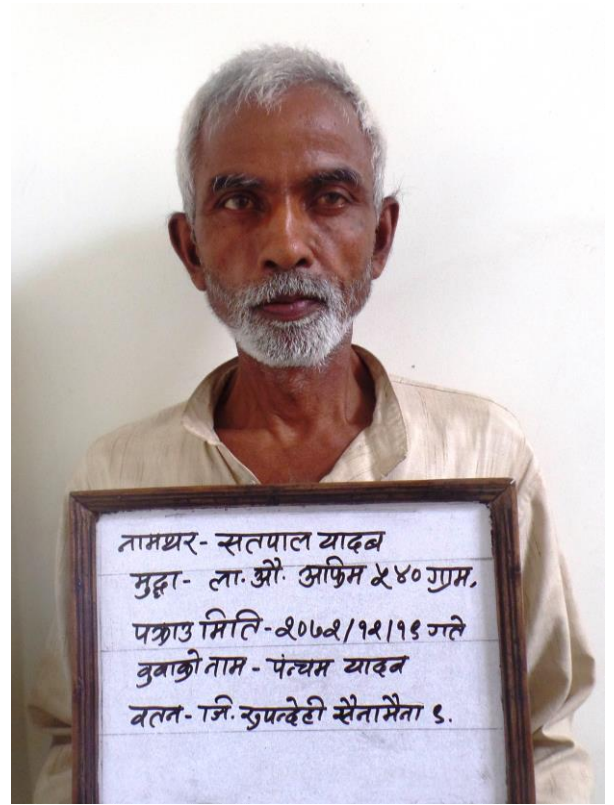 नामथर- सतपाल यादव
मुद्दा- ला. औ. अफिम ५४० ग्राम.
पक्राउ मिति-२०७२/१२/१९ गते
बुवाको नाम - पंन्चम यादव
वतन- जि. रुपन्देही सैनामैना ९.